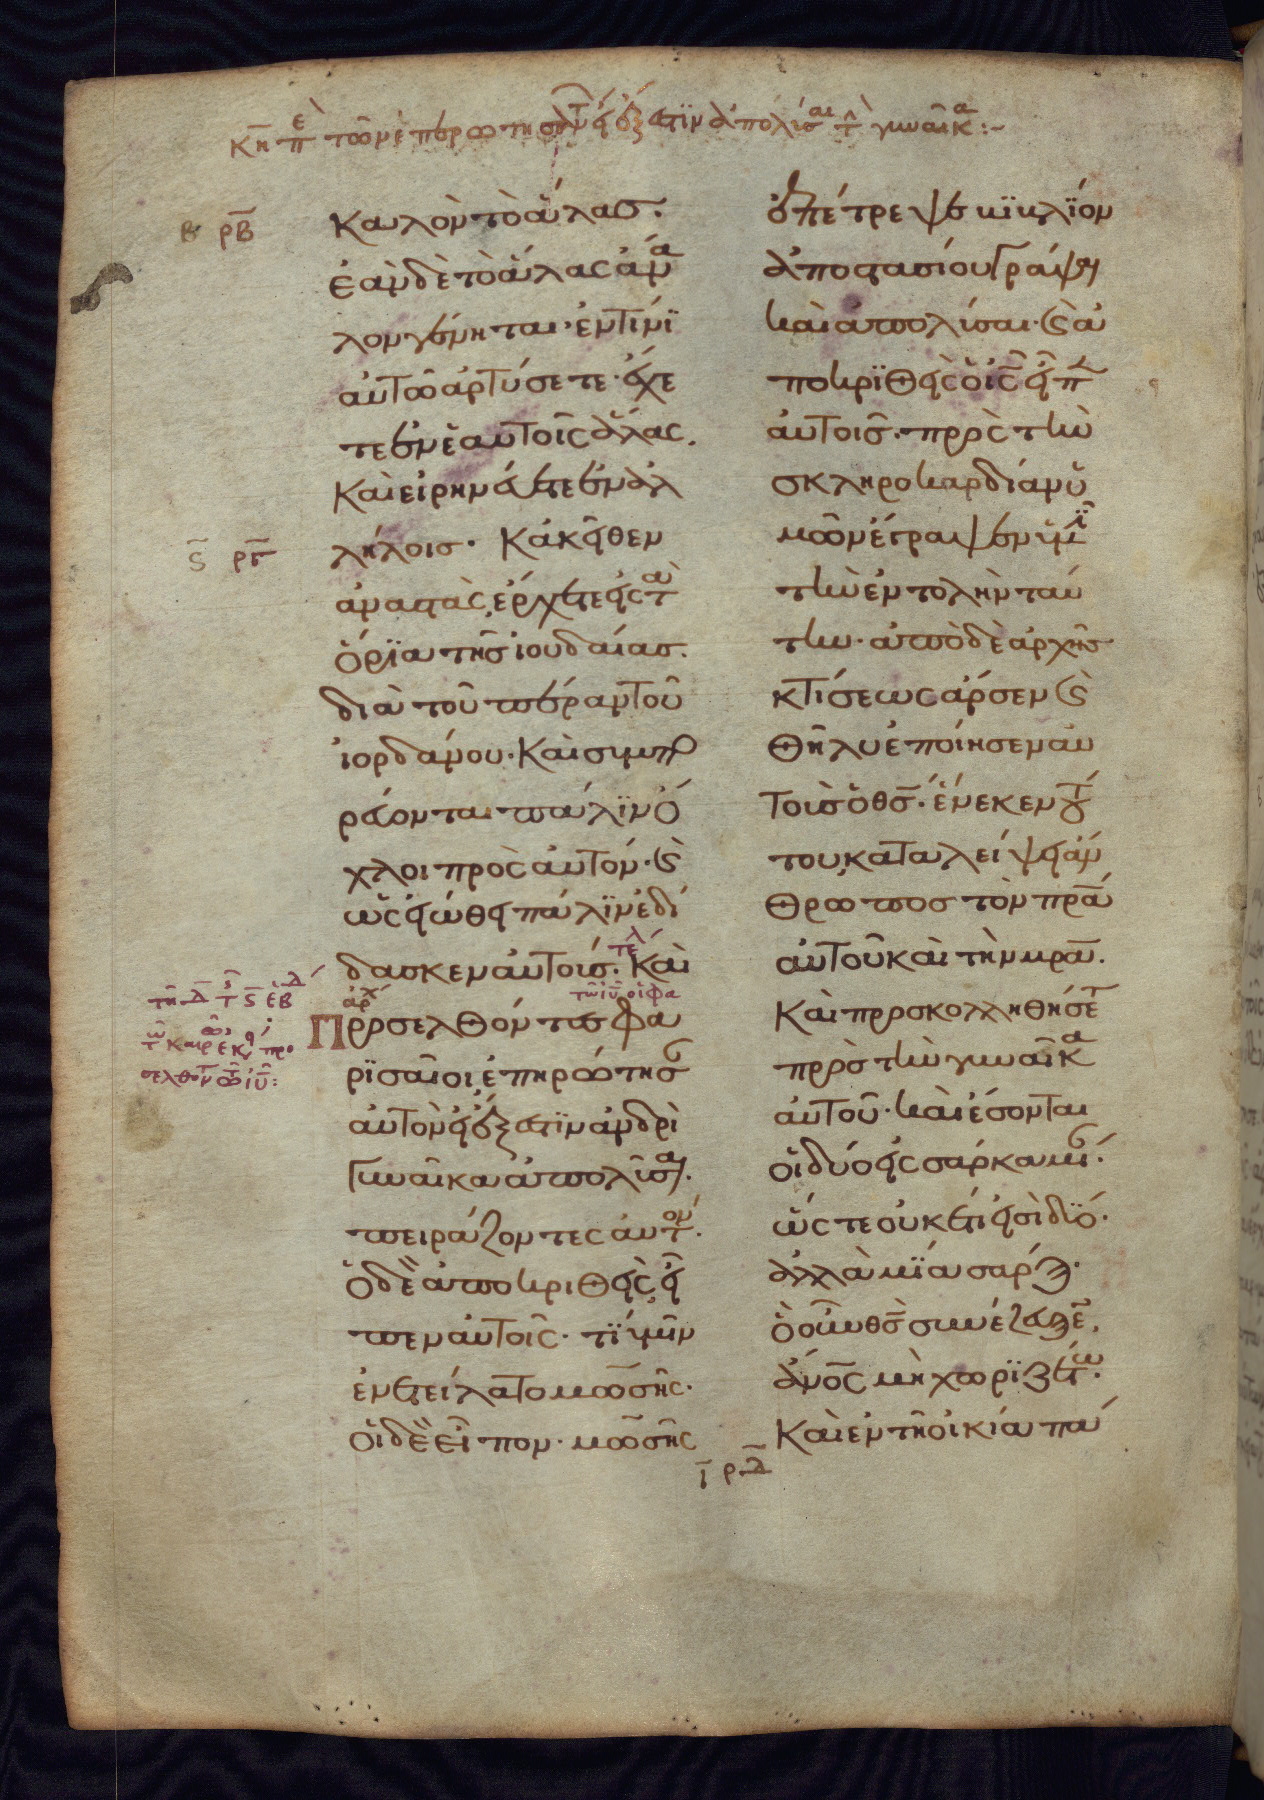 κη π̅ὲ τῶν ἐπερωτησάντ(ων) εἰ ἔξεστϊν ἀπολῦσαι τ(ὴν) γυναῖκα:~
β ρβ̅ Καλὸν τὸ ἅλας·
ἐὰν δὲ τὸ ἅλας ἄνα
λον γένηται· ἐν τίνϊ
αὐτῶ ἀρτύσετε· ἔχε
τε ἐν ἑαυτοῖς ἅλας.
Καὶ εἰρηνεύετε ἐν ἀλ
ϛ̅ ργ̅ λήλοις· Κἀκεῖθεν
ἀναστὰς, ἔρχεται εἰς τὰ
ὅρϊα τῆς ἰουδαίας.
διὰ τοῦ πέραν τοῦ
ἰορδάνου· Καὶ συμπο
ρεύονται πάλϊν ὄ
χλοι πρὸς αὐτόν· καὶ
ὡς εἰώθει πάλϊν ἐδί
δασκεν αὐτούς· τέλ Καὶ
ἀρχ τῶ ἰ͞υ οἱ φα
Προσελθόντες φα
ρϊσαῖοι, ἐπηρώτησ
αὐτὸν εἰ ἔξεστϊν ἀνδρὶ
γυναῖκα ἀπολῦσαι·
πειράζοντες αὐτόν·
ὁ δὲ ἀποκριθεὶς, εἶ
πεν αὐτοῖς· τί ὑμῖν
ἐνετείλατο μωσῆς·
οἱ δὲ εἶπον· μωσῆς
ἐπέτρεψε βιβλίον
ἀποστασίου γράψαι
καὶ ἀπολῦσαι· καὶ ἀ
ποκρϊθεὶς ὁ ι͞ς εἶπ
αὐτοῖς· πρὸς τὴν
σκληροκαρδίαν ὑ
μῶν ἔγραψεν ὑμῖ
τὴν ἐντολὴν ταύ
την· ἀπὸ δὲ ἀρχῆς
κτίσεως ἄρσεν καὶ
θῆλυ ἐποίησεν αὐ
τοὺς ὁ θ͞ς· ἕνεκεν τού
του, καταλείψει ἄν
θρωπος τὸν πρ͞α
αὐτοῦ καὶ τὴν μρ͞α.
Καὶ προσκολληθήσετ
πρὸς τὴν γυναῖκα
αὐτοῦ· καὶ ἔσονται
οἱ δύο εἰς σάρκα μί·
ὥς τε οὐκέτι εἰσὶ δύο·
ἀλλὰ μΐα σάρξ·
ὃ οὖν ὁ θ͞ς συνέζευξε,
ἄν͞ος μὴ χωρϊζέτω·
ι̅ ρδ̅ Καὶ ἐν τῆ οἰκία πά